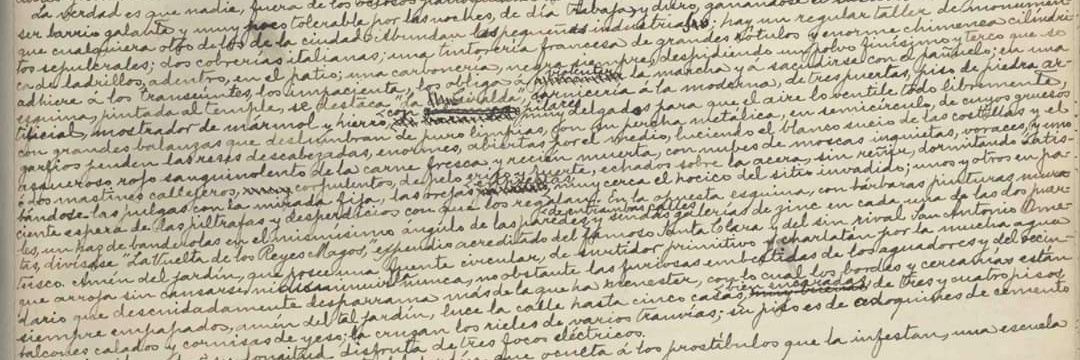 La verdad es que nadie, fuera de los
ser barrio galante y muy poco tolerable por las noches, de día trabaja y diero, ganándose el
que cualquiera otro de los de la ciudad. Abundan las pequeñas industrias; hay un regular taller de monumen-
tos sepulcrales; dos cobrerías italianas; una tintorería francesa de grandes rótulos y enorme chimenea cilíndri-
ca de ladrillos, adentro, en el patio; una carbonería, negra siempre, despidiendo un polvo finísimo y terco que se
adhiere á los transeúntes, los impacienta, los obliga á violentar la marcha y á sacudirse con el pañuelo; en una
esquina, pintada al temple, se destaca "La Giralda", carnicería á la moderna, de tres puertas, piso de piedra ar-
tificial, mostrador de mármol y hierro, con pilares muy delgados para que el aire lo ventile todo libremente,
con grandes balanzas que deslumbran de puro limpias, con su percha metálica, en semicírculo, de cuyos gruesos
garfios penden las reses descabezadas, enormes, abiertas por el medio, luciendo el blanco sucio de las costillas y el
asqueroso rojo sanguinolento de la carne fresca y recién muerta, con nubes de moscas inquietas, voraces, y uno
ó dos mastines callejeros, corpulentos, de pelo erizo y fuerte, echados sobre la acera, sin reñir, dormitando ó atis-
bándose las pulgas con la mirada fija, las orejas muy cerca el hocico del sitio invadido; unos y otros en pa-
ciente espera de las piltrafas y desperdicios con que los regalan. En la opuesta esquina, con bárbaras pinturas mura-
les, un haz de banderolas en el mismísimo ángulo de las paredes y sendas galerías de zinc en cada una de las dos puer-
tas, divísase "La Vuelta de los Reyes Magos", expendio acreditado del famoso Santa Clara y del sin rival San Antonio Ame-
cusco. Amén del jardín, que posee una fuente circular, de surtidor primitivo y charlatán por la mucha agua
que arroja sin cansarse ni disminuirla nunca, no obstante las furiosas embestidas de los aguadores y del vecin-
dario que descuidadamente desparrama más de la que ha menester, con lo cual los bordes y cercanías están
siempre empapados; amén del tal jardín, luce la calle hasta cinco casas bien encaradas, de tres y cuatro pisos,
balcones calados y cornisas de yeso; la cruzan los rieles de varios tranvías; su piso es de adoquines de cemento
longitud, disfruta de tres focos eléctricos.
que oculta á los prostíbulos que la infestan, una escuela